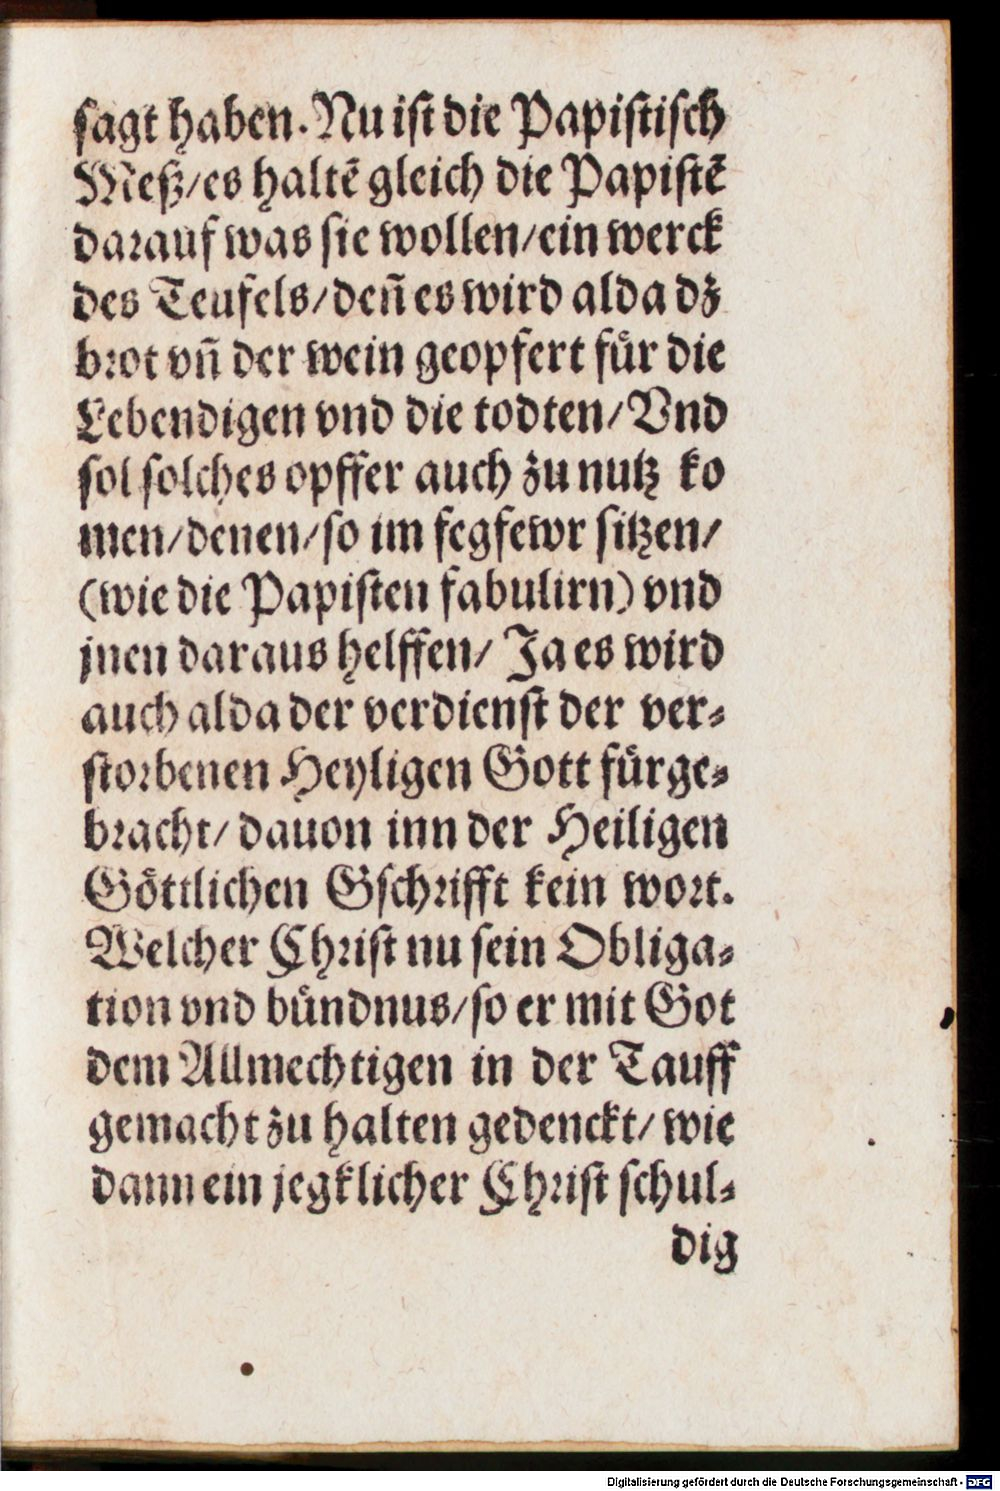 sagt haben. Nu ist die Papistisch
Meß/es haltē gleich die Papistē
darauf was sie wollen/ein werck
des Teufels/deñ es wird alda dz
brot vñ der wein geopfert fuͤr die
Lebendigen vnd die todten/Vnd
sol solches opffer auch zu nutz ko
men/denen/so im fegfewr sitzen/
(wie die Papisten fabulirn) vnd
jnen daraus helffen/ Ja es wird
auch alda der verdienst der ver⸗
storbenen Heyligen Gott fuͤrge⸗
bracht/ dauon inn der Heiligen
Goͤttlichen Gschrifft kein wort.
Welcher Christ nu sein Obliga⸗
tion vnd buͤndnus/so er mit Got
dem Allmechtigen in der Tauff
gemacht zu halten gedenckt/ wie
dann ein jegklicher Christ schul⸗
dig
Digitalisierung gefördert durch die Deutsche Forschungsgemeinschaft - DFG